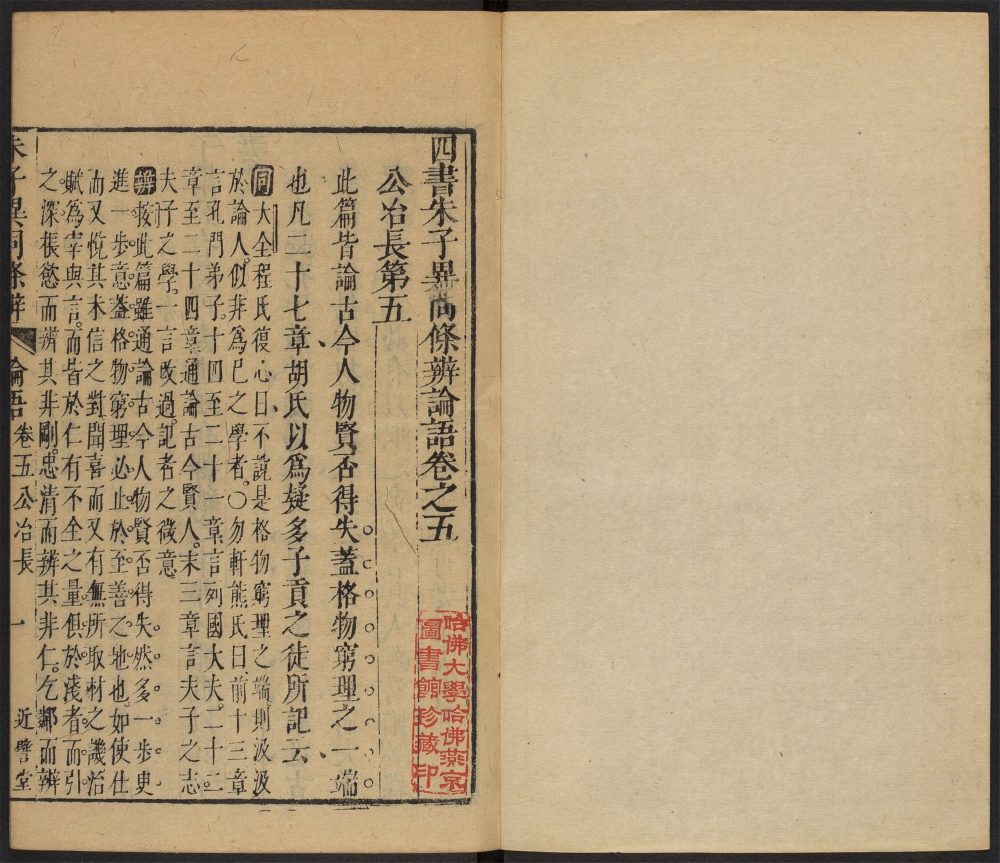 四書朱子異同條辨論語卷之五
公冶長第五
此篇皆論古今人物賢否得失蓋格物窮理之一端
也凡二十七章胡氏以爲疑多子貢之徒所記云
同大全程氏復心曰不說是格物窮理之端則汲汲
於論人似非爲已之學者○勿軒熊氏曰前十三章
言孔門弟子十四至二十一章言列國大夫二十二
章至二十四章通論古今賢人末三章言夫子之志
夫子之學一言改過記者之微意
辨按此篇雖通論古今人物賢否得失然多一步更
進一步意蓋格物窮理必止於至善之地也如使仕
而又悅其未信之對聞喜而又有無所取材之譏治
賦爲宰與言而皆於仁有不全之量俱於淺者而引
之深棖慾而辨其非剛忠清而辨其非仁乞鄰而辨
朱子異同條辨 論語卷五公冶長 一 近譬堂
哈佛大學哈佛燕京
圖書館珍藏印